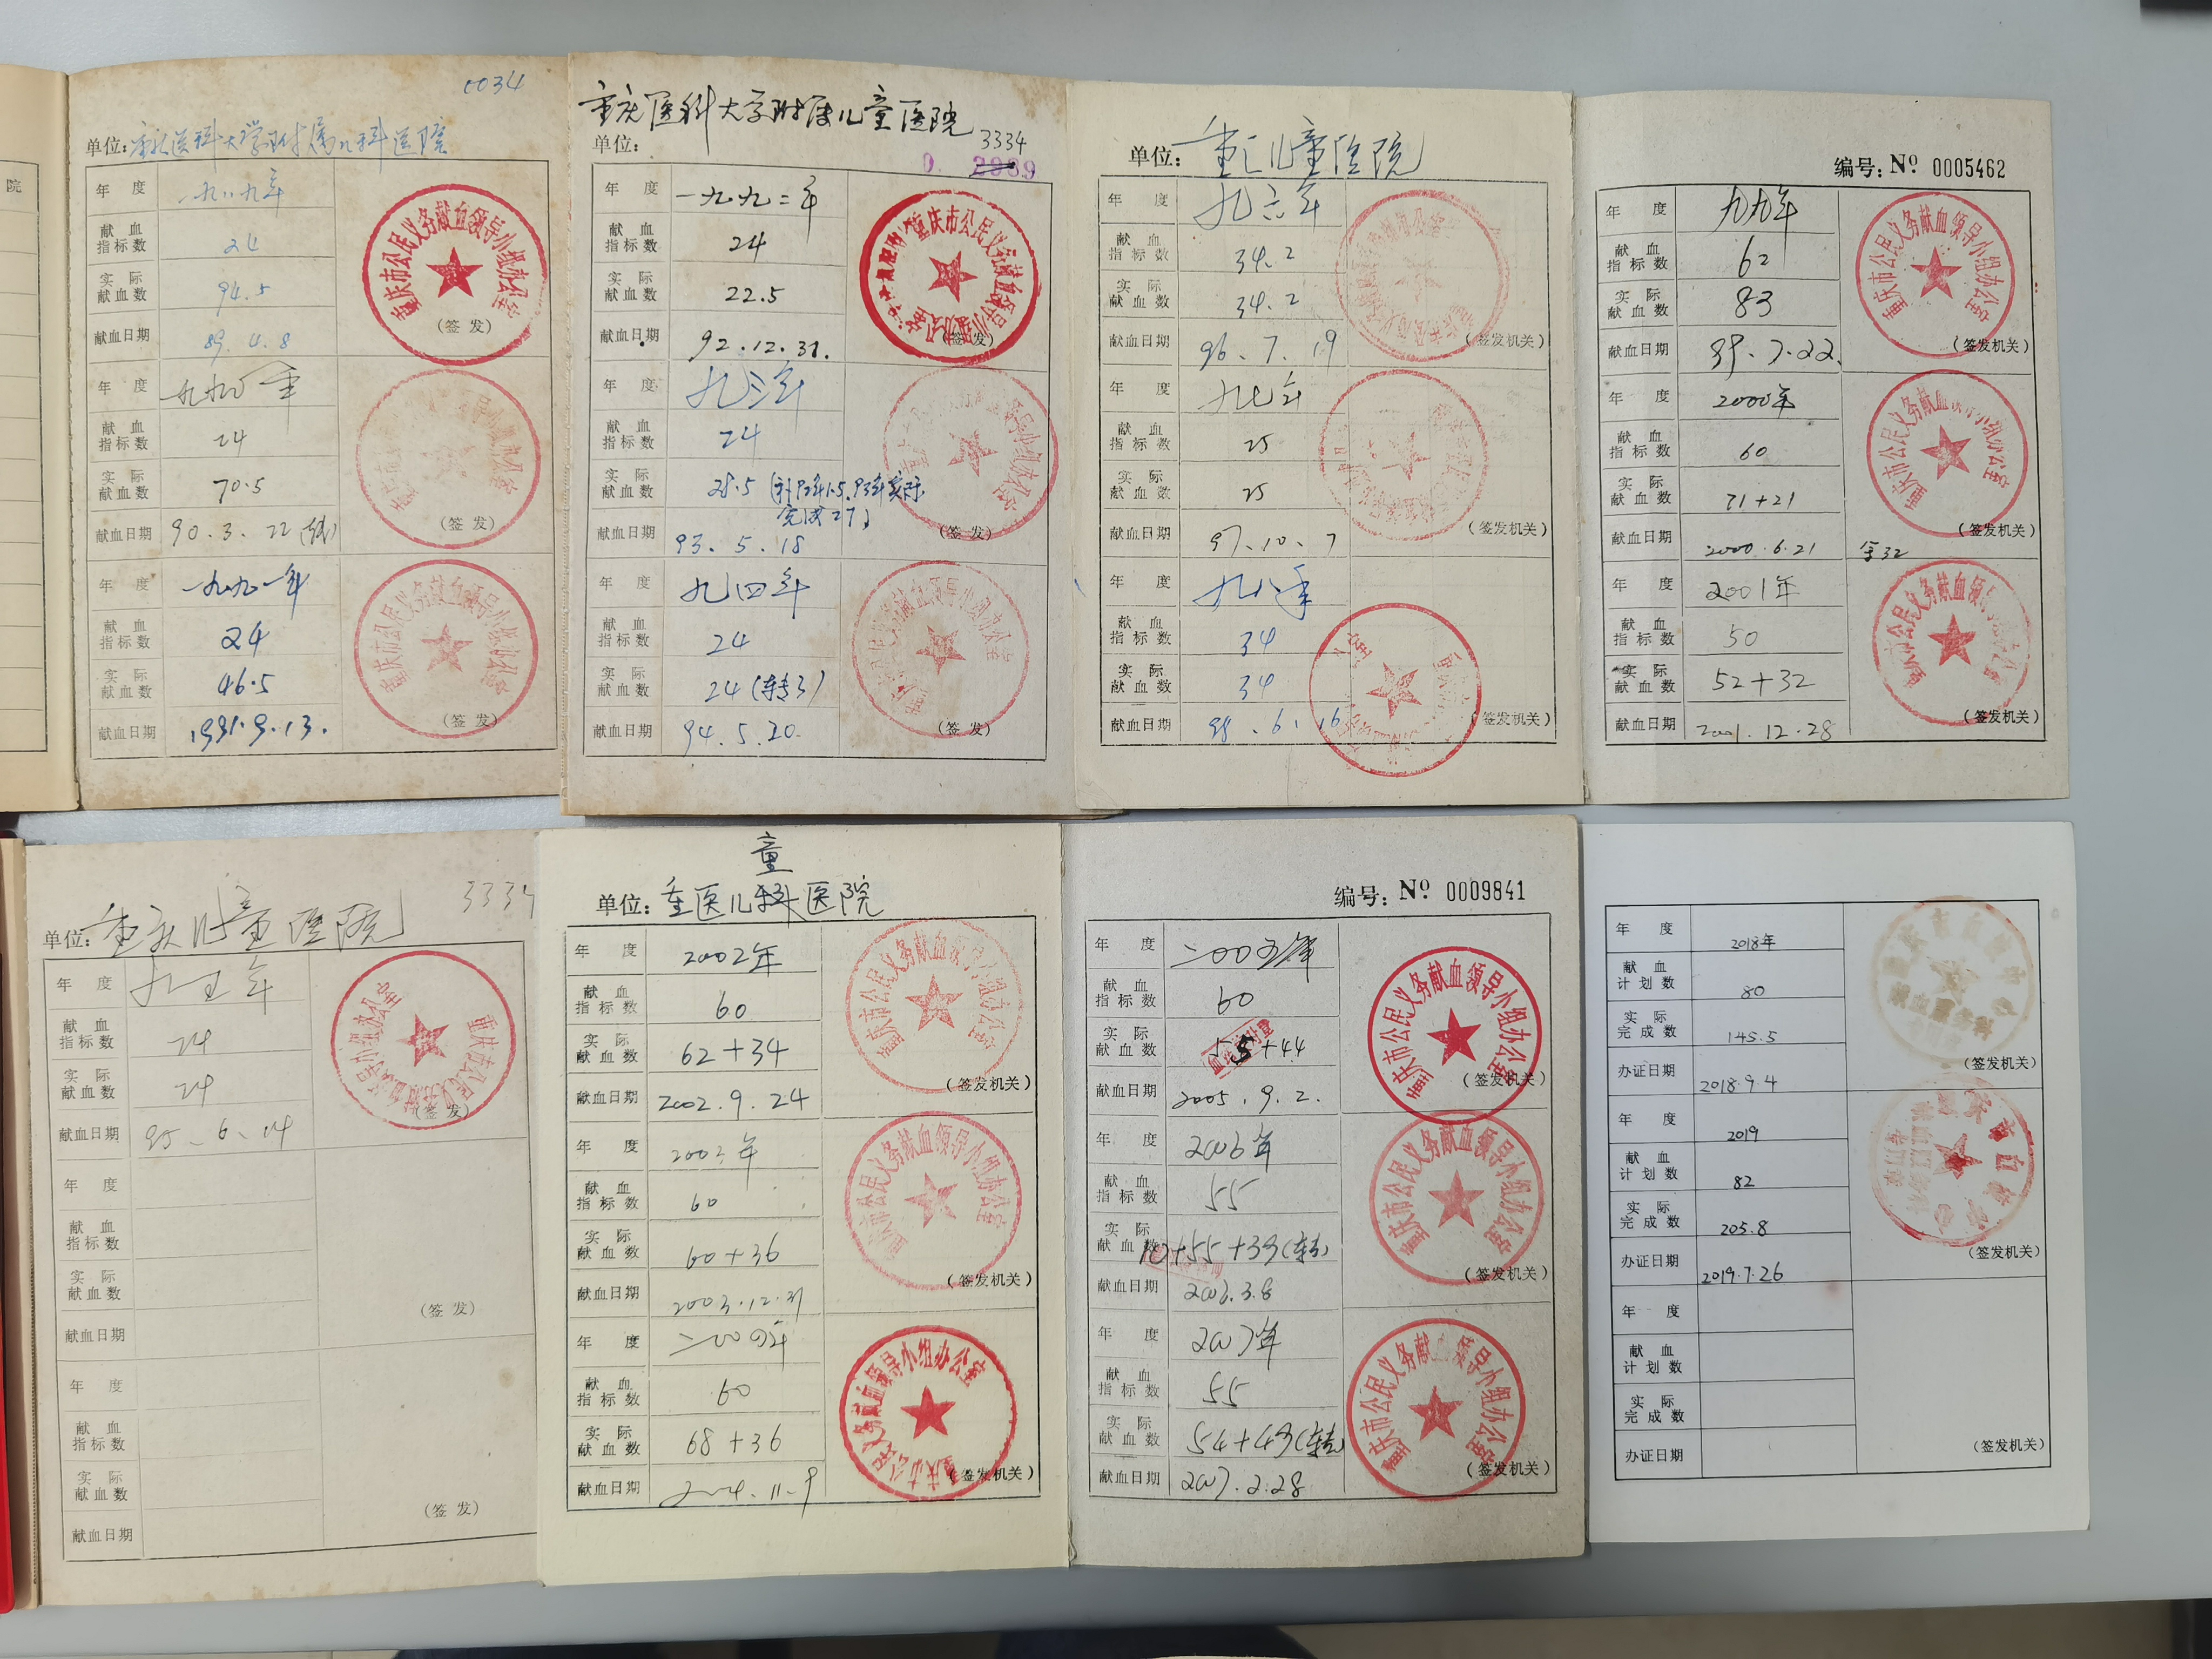 院
0034
单位：重庆医科大学附属儿科医院
年 度 一九八九年
献血指标数 24
实际献血数 94.5
献血日期 89.4.8
重庆市公民义务献血领导小组办公室
(签 发)
年 度 一九九〇年
献血指标数 24
实际献血数 70.5
献血日期 90.3.22
(签 发)
年 度 一九九一年
献血指标数 24
实际献血数 46.5
献血日期 1991.9.13.
重庆市公民义务献血领导小组办公室
(签 发)
重庆医科大学附属儿童医院
单位：
3334
年 度 一九九二年
献血指标数 24
实际献血数 22.5
献血日期 92.12.31.
(签 发)
年 度 九三年
献血指标数 24
实际献血数 28.5 (补92年1.5,93年实际
完成27)
献血日期 93.5.18
(签 发)
年 度 九四年
献血指标数 24
实际献血数 24(转3)
献血日期 94.5.20.
(签 发)
单位：重医儿童医院
年 度 九六年
献血指标数 34.2
实际献血数 34.2
献血日期 96.7.19
(签发机关)
年 度 九七年
献血指标数 25
实际献血数 25
献血日期 97.10.7
(签发机关)
年 度 九八年
献血指标数 34
实际献血数 34
献血日期 98.6.16
(签发机关)
编号：№ 0005462
年 度 九九年
献血指标数 62
实际献血数 83
献血日期 99.7.22.
重庆市公民义务献血领导小组办公室
(签发机关)
年 度 2000年
献血指标数 60
实际献血数 71+21
献血日期 2000.6.21
重庆市公民义务献血领导小组办公室
(签发机关)
余32
年 度 2001年
献血指标数 50
实际献血数 52+32
献血日期 2001.12.28
(签发机关)
3334
单位：重庆儿童医院
年 度 九五年
献血指标数 24
实际献血数 24
献血日期 95.6.14
(签 发)
年 度
献血指标数
实际献血数
献血日期
(签 发)
年 度
献血指标数
实际献血数
献血日期
(签 发)
童
单位：重医儿科医院
年 度 2002年
献血指标数 60
实际献血数 62+34
献血日期 2002.9.24
重庆市公民义务献血领导小组办公室
(签发机关)
年 度 2003年
献血指标数 60
实际献血数 60+36
献血日期 2003.12.31
重庆市公民义务献血领导小组办公室
(签发机关)
年 度 二00四年
献血指标数 60
实际献血数 68+36
献血日期 2004.11.9
重庆市公民义务献血领导小组办公室
(签发机关)
编号：№ 0009841
年 度 二00五年
献血指标数 60
实际献血数 55+44
献血日期 2005.9.2.
重庆市公民义务献血领导小组办公室
(签发机关)
年 度 2006年
献血指标数 55
实际献血数 10+55+39(转)
献血日期 2006.3.8
重庆市公民义务献血领导小组办公室
(签发机关)
年 度 2007年
献血指标数 55
实际献血数 54+49(转)
献血日期 2007.2.28
重庆市公民义务献血领导小组办公室
(签发机关)
年 度 2018年
献血计划数 80
实际完成数 145.5
办证日期 2018.9.4
(签发机关)
年 度 2019
献血计划数 82
实际完成数 205.8
办证日期 2019.7.26
(签发机关)
年 度
献血计划数
实际完成数
办证日期
(签发机关)